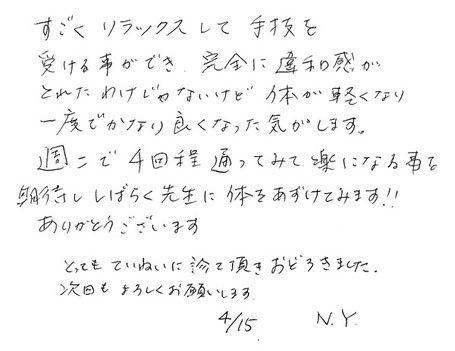 すごくリラックスして手技を
受ける事ができ、完全に違和感が
とれたわけじゃないけど体が軽くなり
一度でかなり良くなった気がします。
週二で4回程通ってみて楽になる事を
期待ししばらく先生に体をあずけてみます!!
ありがとうございます
とってもていねいに診て頂きおどろきました。
次回もよろしくお願いします
4/15 N.Y.